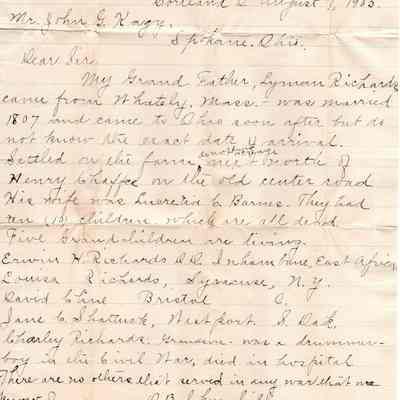 Cortland O August 7, 1903.
Mr. John G. Kagy.
Spokane. Ohio.
Dear Sir.
My Grand Father, Lyman Richards
came from Whately, Mass. - was married
1807 and came to Ohio soon after but do
not know the exact date of arrival.
Settled on the farm, next north of
Henry Chaffee on the old center road
His wife was Lucretia C. Barnes. They had
ten (10) children which are all dead
Five Grandchildren are living.
Erwin H. Richards D.D. Inhambane, East Africa
Louisa Richards, Syracuse, N. Y.
David Cline Bristol O.
Jane C Shattuck, Westport S. Dak.
Charley Richards. Grandson - was a drummer-
boy in the Civil War, died in hospital
There are no others that served in any war that we